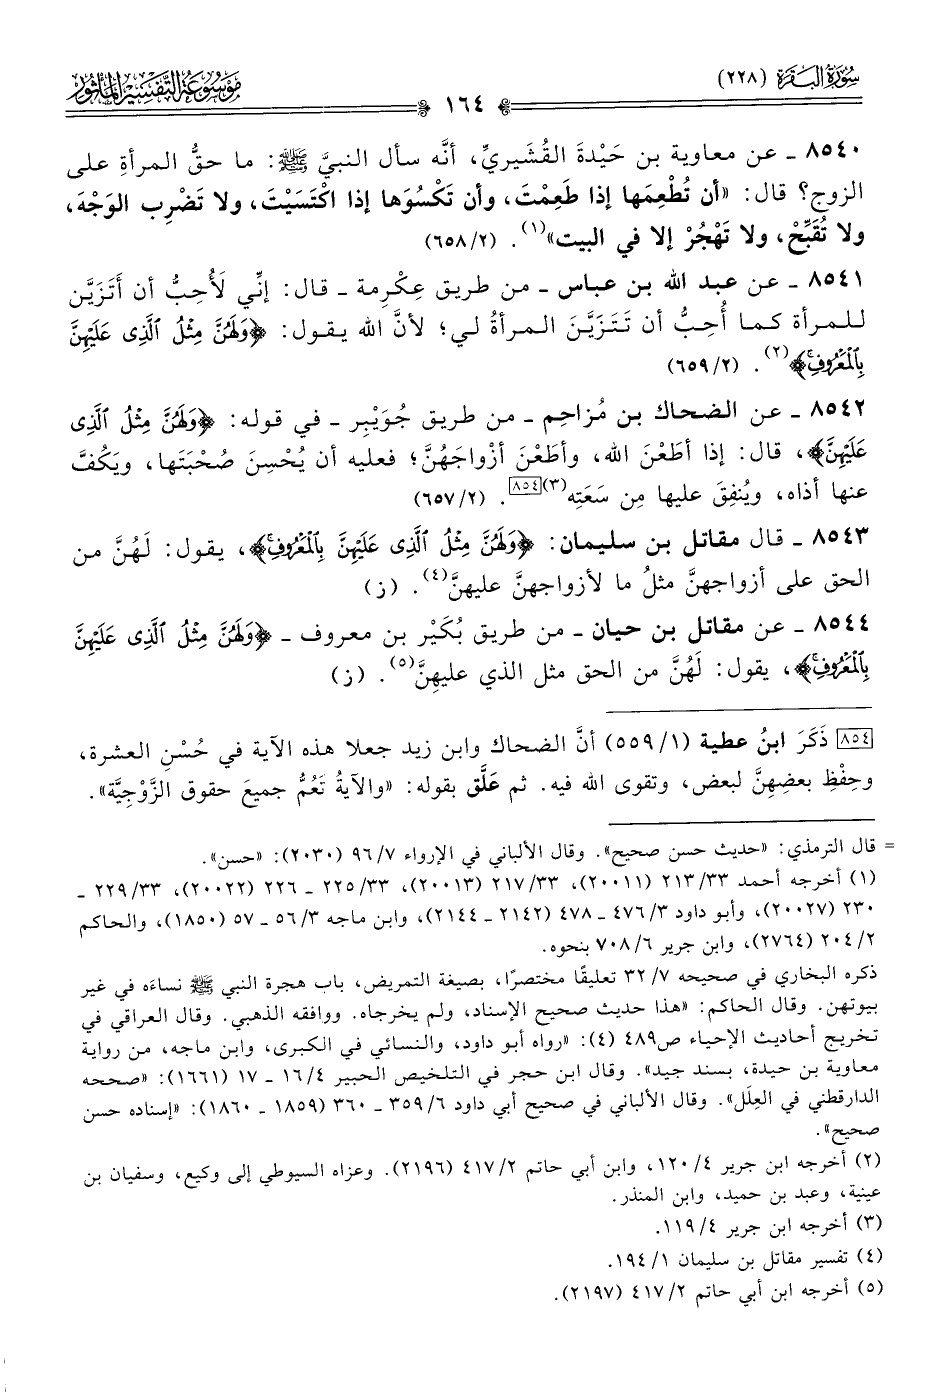 سورة البقرة (٢٢٨)
١٦٤
موسوعة التفسير المأثور
٨٥٤٠ ـ عن معاوية بن حَيْدةَ القُشَيريِّ، أنَّه سأل النبيَّ ﷺ: ما حقُّ المرأةِ على
الزوج؟ قال: «أن تُطْعِمَها إذا طَعِمْتَ، وأن تَكْسُوَها إذا اكْتَسَيْتَ، ولا تَضْرِبِ الوَجْهَ،
ولا تُقَبِّحْ، ولا تَهْجُرْ إلا في البيت»(١). (٢/ ٦٥٨)
٨٥٤١ ـ عن عبد الله بن عباس ـ من طريق عِكْرِمة ـ قال: إنِّي لَأُحِبُّ أن أَتَزَيَّن
للمرأة كما أُحِبُّ أن تَتَزَيَّنَ المرأةُ لي؛ لأنَّ الله يقول: ﴿وَلَهُنَّ مِثْلُ ٱلَّذِى عَلَيْهِنَّ
بِٱلْمَعْرُوفِۚ﴾(٢). (٢/ ٦٥٩)
٨٥٤٢ ـ عن الضحاك بن مُزاحِم ـ من طريق جُوَيْبِر ـ في قوله: ﴿وَلَهُنَّ مِثْلُ ٱلَّذِى
عَلَيْهِنَّ﴾، قال: إذا أطَعْنَ الله، وأطَعْنَ أزْواجَهُنَّ؛ فعليه أن يُحْسِنَ صُحْبَتَها، ويَكُفَّ
عنها أذاه، ويُنفِقَ عليها مِن سَعَتِه(٣)[٨٥٤]. (٢/ ٦٥٧)
٨٥٤٣ ـ قال مقاتل بن سليمان: ﴿وَلَهُنَّ مِثْلُ ٱلَّذِى عَلَيْهِنَّ بِٱلْمَعْرُوفِۚ﴾، يقول: لَهُنَّ من
الحق على أزواجهنَّ مثلُ ما لأزواجهنَّ عليهنَّ(٤). (ز)
٨٥٤٤ ـ عن مقاتل بن حيان ـ من طريق بُكَيْر بن معروف ـ ﴿وَلَهُنَّ مِثْلُ ٱلَّذِى عَلَيْهِنَّ
بِٱلْمَعْرُوفِۚ﴾، يقول: لَهُنَّ من الحق مثل الذي عليهنَّ(٥). (ز)
[٨٥٤] ذَكَرَ ابنُ عطية (١/ ٥٥٩) أنَّ الضحاك وابن زيد جعلا هذه الآية في حُسْنِ العشرة،
وحِفْظِ بعضِهِنَّ لبعض، وتقوى الله فيه. ثم عَلَّق بقوله: «والآيةُ تَعُمُّ جميعَ حقوق الزَّوْجِيَّة».
= قال الترمذي: «حديث حسن صحيح». وقال الألباني في الإرواء ٧/ ٩٦ (٢٠٣٠): «حسن».
(١) أخرجه أحمد ٣٣/ ٢١٣ (٢٠٠١١)، ٣٣/ ٢١٧ (٢٠٠١٣)، ٣٣/ ٢٢٥ ـ ٢٢٦ (٢٠٠٢٢)، ٣٣/ ٢٢٩ ـ
٢٣٠ (٢٠٠٢٧)، وأبو داود ٣/ ٤٧٦ ـ ٤٧٨ (٢١٤٢ ـ ٢١٤٤)، وابن ماجه ٣/ ٥٦ ـ ٥٧ (١٨٥٠)، والحاكم
٢/ ٢٠٤ (٢٧٦٤)، وابن جرير ٦/ ٧٠٨ بنحوه.
ذكره البخاري في صحيحه ٧/ ٣٢ تعليقًا مختصرًا، بصيغة التمريض، باب هجرة النبي ﷺ نساءَه في غير
بيوتهن. وقال الحاكم: «هذا حديث صحيح الإسناد، ولم يخرجاه. ووافقه الذهبي. وقال العراقي في
تخريج أحاديث الإحياء ص٤٨٩ (٤): «رواه أبو داود، والنسائي في الكبرى، وابن ماجه، من رواية
معاوية بن حيدة، بسند جيد». وقال ابن حجر في التلخيص الحبير ٤/ ١٦ ـ ١٧ (١٦٦١): «صححه
الدارقطني في العِلَل». وقال الألباني في صحيح أبي داود ٦/ ٣٥٩ ـ ٣٦٠ (١٨٥٩ ـ ١٨٦٠): «إسناده حسن
صحيح».
(٢) أخرجه ابن جرير ٤/ ١٢٠، وابن أبي حاتم ٢/ ٤١٧ (٢١٩٦). وعزاه السيوطي إلى وكيع، وسفيان بن
عيينة، وعبد بن حميد، وابن المنذر.
(٣) أخرجه ابن جرير ٤/ ١١٩.
(٤) تفسير مقاتل بن سليمان ١/ ١٩٤.
(٥) أخرجه ابن أبي حاتم ٢/ ٤١٧ (٢١٩٧).